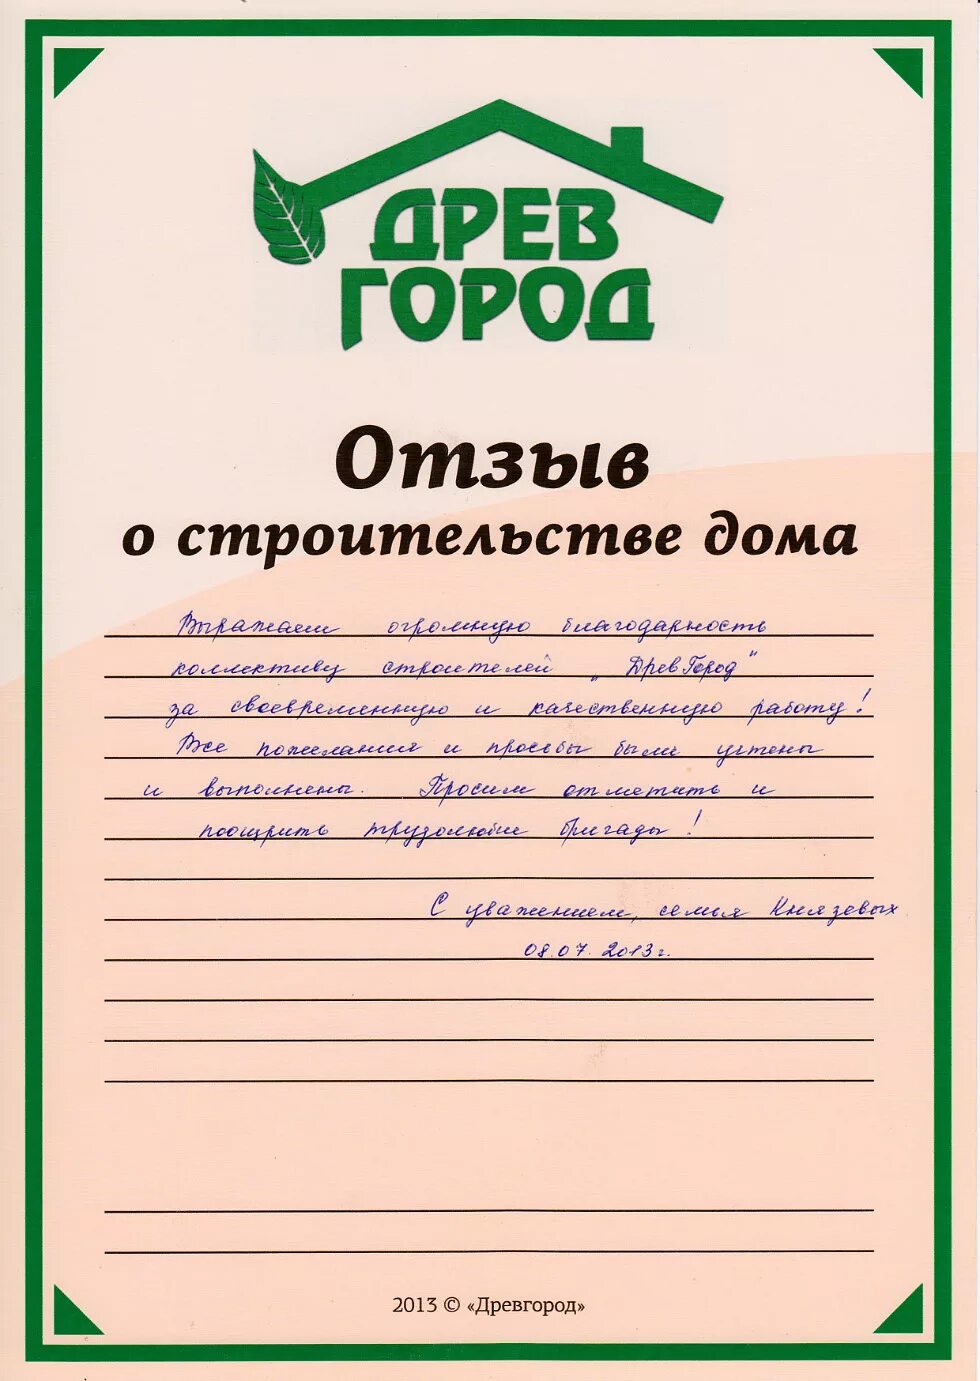 ДРЕВ
ГОРОД
Отзыв
о строительстве дома
Выражаем огромную благодарность
коллективу строителей „ДревГород"
за своевременную и качественную работу!
Все пожелания и просьбы были учтены
и выполнены. Просим отметить и
поощрить трудолюбие бригады!
С уважением, семья Князевых
08.07.2013г.
2013 © «Древгород»